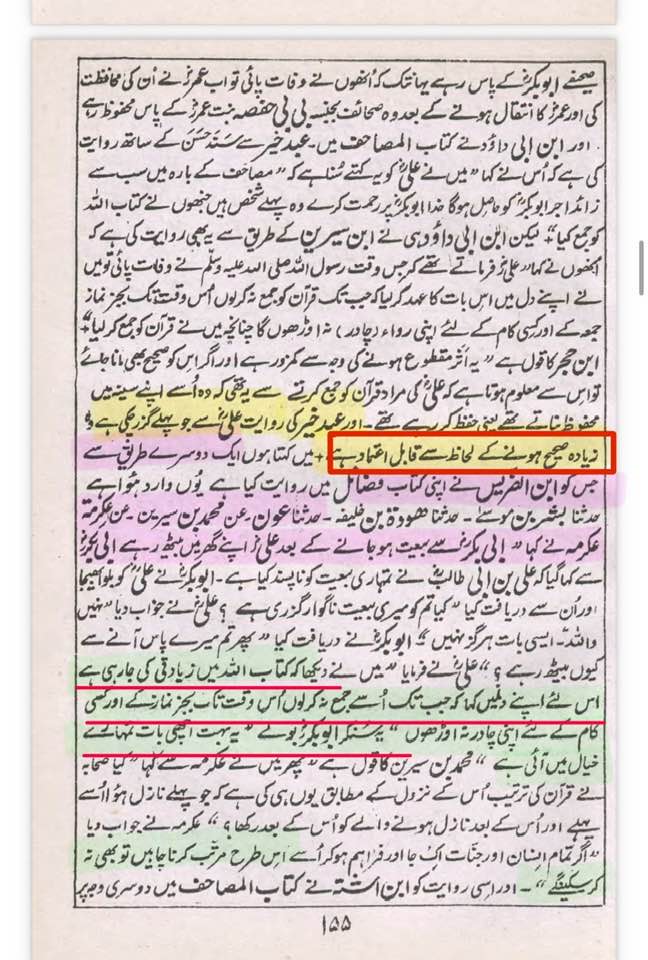 صحیفے ابوبکرؓ کے پاس رہے یہانتک کہ اُنھوں نے وفات پائی تو اب عمرؓ نے اُن کی محافظت
کی اور عمرؓ کا انتقال ہونے کے بعد وہ صحائف بجنسہٖ بی بی حفصہ بنت عمرؓ کے پاس محفوظ رہے
اور ابن ابی داؤد نے کتاب المصاحف میں۔ عبد خیر سے سَنَد حَسَن کے ساتھ روایت
کی ہے کہ اُس نے کہا "میں نے علیؓ کو یہ کہتے سُنا ہے کہ "مصاحف کے بارہ میں سب سے
زائد اجر ابوبکرؓ کو حاصل ہوگا خدا ابوبکرؓ پر رحمت کرے وہ پہلے شخص ہیں جنھوں نے کتاب اللہ
کو جمع کیا"+ لیکن ابن ابی داؤد ہی نے ابن سیرین کے طریق سے یہ بھی روایت کی ہے کہ
انھوں نے کہا "علیؓ فرماتے تھے کہ جس وقت رسول اللہ صلی اللہ علیہ وسلّم نے وفات پائی تو میں
نے اپنے دل میں اس بات کا عہد کرلیا کہ جب تک قرآن کو جمع نہ کرلوں اُس وقت تک بجز نماز
جمعہ کے اور کسی کام کے لئے اپنی رواء (چادر) نہ اوڑھوں گا چنانچہ میں نے قرآن کو جمع کرلیا"+
ابن حجر کا قول ہے "یہ اَثر مقطوع ہونے کی وجہ سے کمزور ہے اور اگر اس کو صحیح بھی مانا جائے
تو اس سے معلوم ہوتا ہے کہ علیؓ کی مراد قرآن کو جمع کرتے سے یہ تھی کہ وہ اُسے اپنے سینہ میں
محفوظ بناتے تھے یعنی حفظ کر رہے تھے۔ اور عبد خیر کی روایت علیؓ سے جو پہلے گزر چکی ہے وہ
زیادہ صحیح ہونے کے لحاظ سے قابل اعتماد ہے"+ میں کہتا ہوں ایک دوسرے طریق سے
جس کو ابن الضریس نے اپنی کتاب فضائل میں روایت کیا ہے یُوں وارد ہوا ہے
حدثنا بشر بن موسےٰ۔ حدثنا ھودۃ بن خلیفہ۔ حدثنا عون۔ عن محمد بن سیرین۔ عن عکرمۃ
عکرمہ نے کہا "ابی بکرؓ سے بیعت ہوجانے کے بعد علیؓ اپنے گھر میں بیٹھ رہے ابی بکرؓ
سے کہا گیا کہ علی بن ابی طالبؓ نے تمہاری بیعت کو ناپسند کیا ہے۔ ابوبکرؓ نے علیؓ کو بلوا بھیجا
اور اُن سے دریافت کیا "کیا تم کو میری بیعت ناگوار گزری ہے ؟ علیؓ نے جواب دیا "نہیں
واللہ۔ ایسی بات ہرگز نہیں" ابوبکرؓ نے دریافت کیا "پھر تم میرے پاس آنے سے
کیوں بیٹھ رہے ؟" علیؓ نے فرمایا "میں نے دیکھا کہ کتاب اللہ میں زیادتی کی جارہی ہے
اس لئے اپنے دل میں کہا کہ جب تک اُسے جمع نہ کرلوں اُس وقت تک بجز نماز کے اور کسی
کام کے لئے اپنی چادر نہ اوڑھوں" یہ سُنکر ابوبکرؓ بولے "یہ بہت اچھی بات تمہارے
خیال میں آئی ہے" محمد بن سیرین کا قول ہے "پھر میں نے عکرمہ سے کہا "کیا صحابہ
نے قرآن کی ترتیب اُس کے نزول کے مطابق یوں ہی کی ہے کہ جو پہلے نازل ہُوا اُسے
پہلے اور اُس کے بعد نازل ہونے والے کو اُس کے بعد رکھا؟" عکرمہ نے جواب دیا
"اگر تمام اِنسان اور جنّات اِک جا اور فراہم ہوکر اُسے اِس طرح مرتّب کرنا چاہیں تو بھی نہ
کرسکینگے"۔ اور اسی روایت کو ابن اشتہ نے کتاب المصاحف میں دوسری وجہ پر
۱۵۵